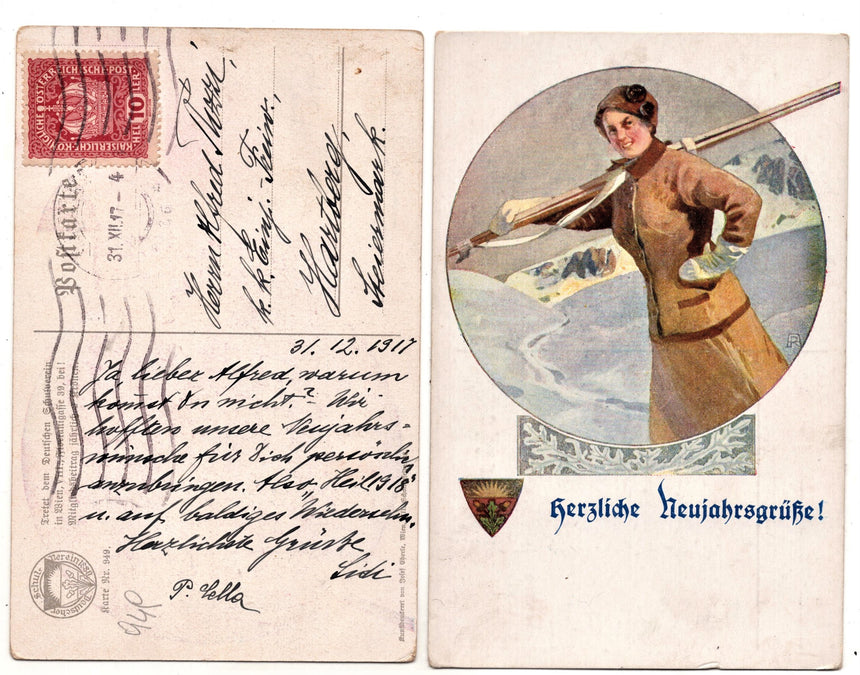 KAISERLICHE KÖNIGLICHE ÖSTERREICHISCHE POST
10
HELLER
Postkarte
31.XII.17-4
Herrn Alfred
k. k. Einj.-Freiw.,
Hartberg,
Steiermark.
31. 12. 1917
Ja, lieber Alfred, warum
kommst Du nicht? Wir
hofften unsere Neujahrs-
wünsche für Dich persönlich
anzubringen. Also Heil 1918!
u. auf baldiges Wiedersehn.
Herzlichste Grüße
Lidi
P. Lella
Tretet dem Deutschen Schulverein
in Wien, VIII., 39, bei!
Mitgliedsbeitrag jährlich
Deutscher Schulverein 1880
Karte Nr. 949.
949
Kunstdruckerei von Josef Eberle, Wien
Herzliche Neujahrsgrüße!